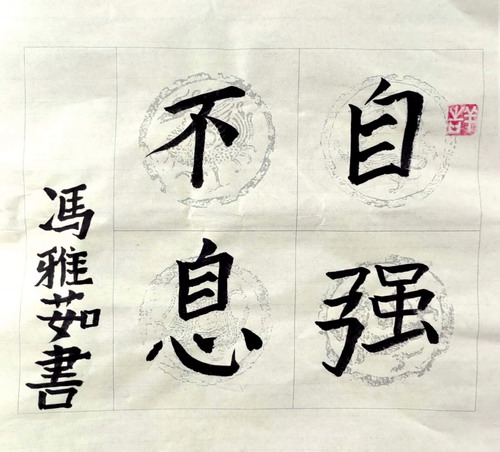 自强
不息
馮雅茹書